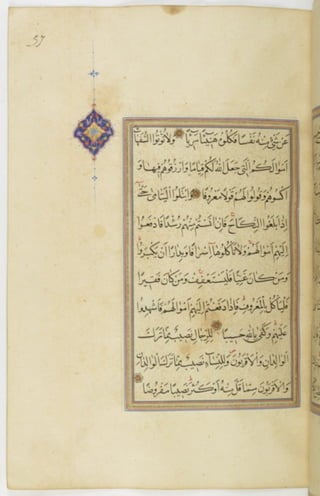 57
عَنْ شَيْءٍ مِنْهُ نَفْسًا فَكُلُوهُ هَنِيئًا مَرِيئًا وَلَا تُؤْتُوا السُّفَهَاءَ
أَمْوَالَكُمُ الَّتِي جَعَلَ اللَّهُ لَكُمْ قِيَامًا وَارْزُقُوهُمْ فِيهَا وَ
اكْسُوهُمْ وَقُولُوا لَهُمْ قَوْلًا مَعْرُوفًا وَابْتَلُوا الْيَتَامَى حَتَّى
إِذَا بَلَغُوا النِّكَاحَ فَإِنْ آنَسْتُمْ مِنْهُمْ رُشْدًا فَادْفَعُوا
إِلَيْهِمْ أَمْوَالَهُمْ وَلَا تَأْكُلُوهَا إِسْرَافًا وَبِدَارًا أَنْ يَكْبَرُوا
وَمَنْ كَانَ غَنِيًّا فَلْيَسْتَعْفِفْ وَمَنْ كَانَ فَقِيرًا
فَلْيَأْكُلْ بِالْمَعْرُوفِ فَإِذَا دَفَعْتُمْ إِلَيْهِمْ أَمْوَالَهُمْ فَأَشْهِدُوا
عَلَيْهِمْ وَكَفَى بِاللَّهِ حَسِيبًا لِلرِّجَالِ نَصِيبٌ مِمَّا تَرَكَ
الْوَالِدَانِ وَالْأَقْرَبُونَ وَلِلنِّسَاءِ نَصِيبٌ مِمَّا تَرَكَ الْوَالِدَانِ
وَالْأَقْرَبُونَ مِمَّا قَلَّ مِنْهُ أَوْ كَثُرَ نَصِيبًا مَفْرُوضًا